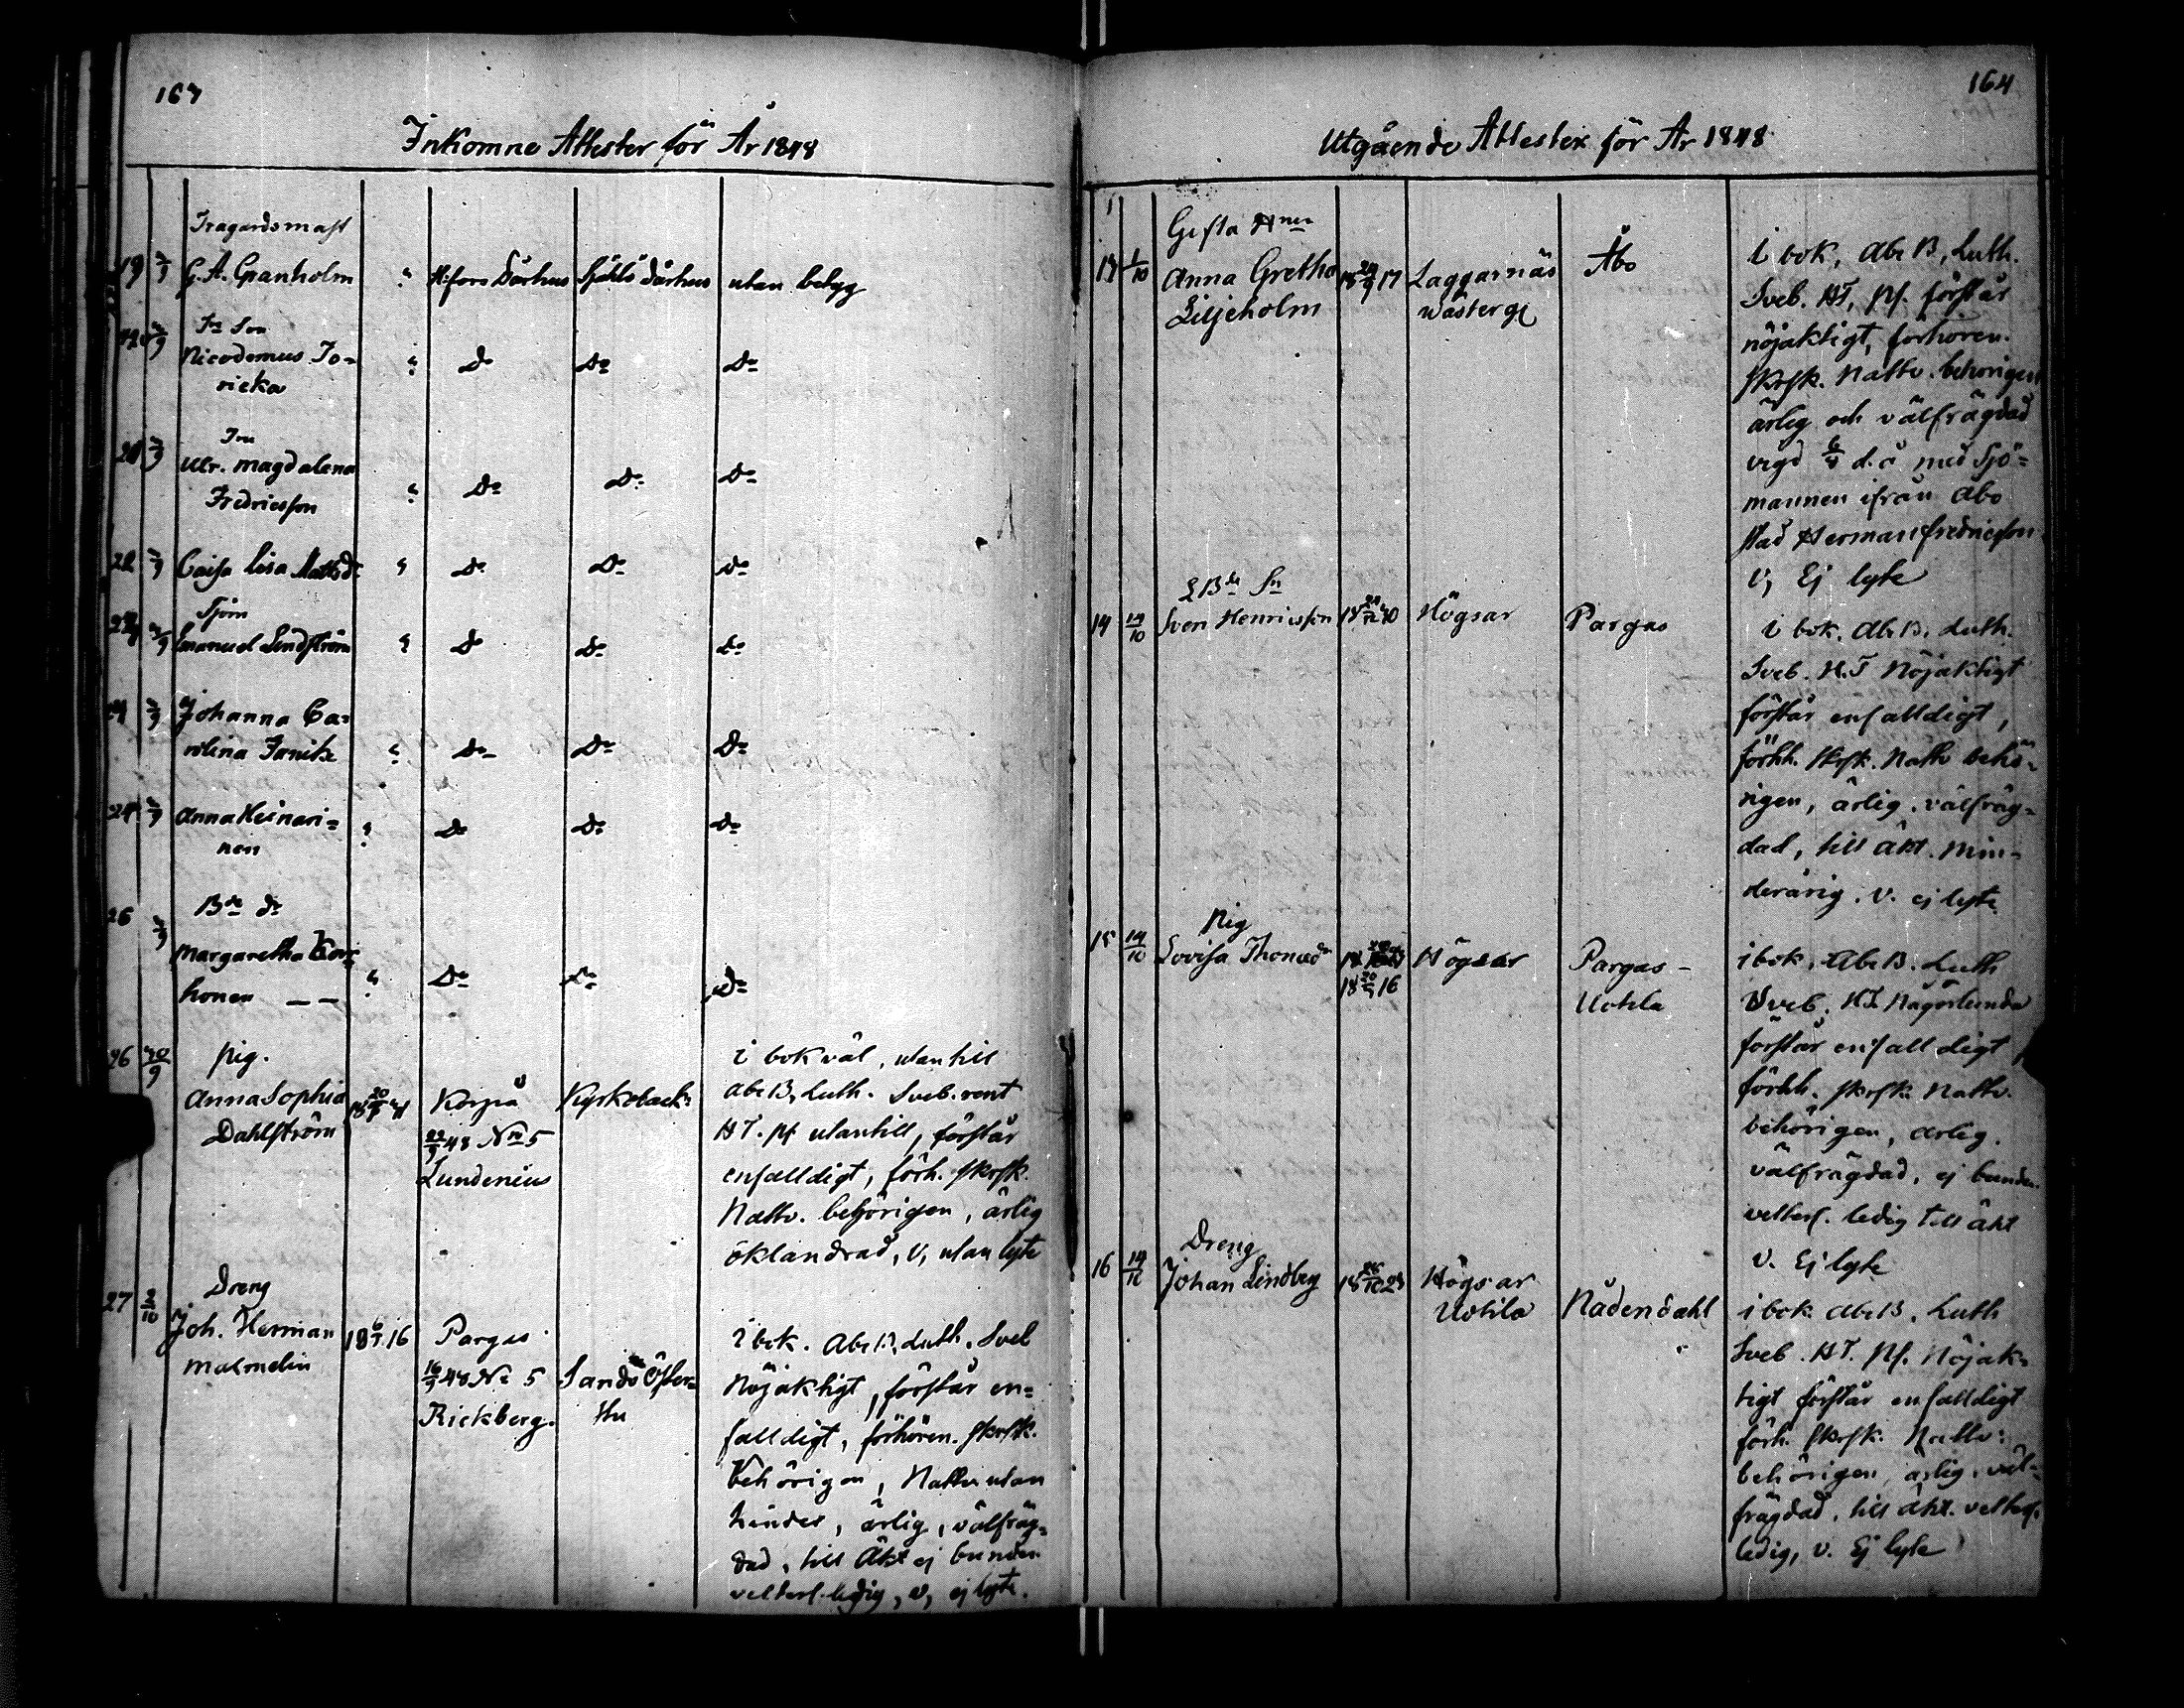 167
Inkomne Attester för År 1848
Tragardsmast
19 2/9 G. A. Granholm " H:fors Dårhus Själö dårhus utan betyg
Nicodemus Jo-
ricka " do Do Do
Ulr. Magdalena
Fredricsson " Do Do Do
22 2/9 Caisa Lisa Mattsdr " Do Do Do
Sjöm
Emanuel Lindström " Do Do Do
Johanna Ca-
rolina Janitz " Do Do Do
Anna Heinari-
nen " Do Do Do
26 2/9
Margaretha Kor-
honen — — " Do Do Do
26 30/9 Pig.
Anna Sophia
Dahlström
Korpå
22/9 48 No 5
Lundenius
Kyrkoback:
i bok väl, utan till
Abc B, Luth. Sveb. rent
HT. pf utantill, förstår
enfalldigt, förh. skrsk.
Nattv. behörigen, ärlig
oklandrad, v, utan lyte
27 2/10 Dreng
Joh. Herman
Malmelin
18 6/7 16
Pargas
16/9 48 No 5
Rickberg.
Sandö Öster-
i bok. Abc B, Luth. Sveb
Nöjaktigt, förstår en-
falldigt, förhören. skrsk.
behörigen, Nattv utan
hinder, ärlig, välfräg-
dad, till Äkt ej bunden
velterl. ledig, v, ej lyte.
164
Utgående Attester för År 1848
13 1/10 Gifta Hnen
Anna Gretha
Liljeholm
Laggarnäs
Wästerg
Åbo
i bok, Abc B, Luth.
Sveb. HT, pf. förstår
nöjaktigt, förhören.
skrsk. Nattv. behörigen
ärlig och välfrägdad
vigd 6/8 d.å med Sjö-
mannen ifrån Åbo
stad Herman Fredricsson
v, Ej lyte
14 14/10
Sven Henricsson
Högsar Pargas
i bok. Abc B. Luth.
Sveb. H.T Nöjaktigt
förstår enfalldigt,
förhh. skrsk. Nattv behö-
rigen, ärlig. välfräg-
dad, till äkt. min-
derårig. v. ej lyte
15 14/10 Pig
Lovisa Thomasdr
18 20/5 16
Högsar
Pargas -
Uotila
i bok. Abc B. Luth
Sveb. HT. Någorlunda
förstår enfalldigt,
förhh. skrsk. Nattv.
behörigen, ärlig.
välfrägdad, ej bunden.
velterl. ledig till äkt
v. Ej lyte
16 14/10 Dreng
Johan Lindberg
Högsar
Uotila
Nådendahl
i bok Abc B. Luth
Sveb. HT. Pf. Nöjak-
tigt förstår enfalldigt
förh. skrsk. Nattv:
behörigen, ärlig. väl-
frägdad, till äkt. velterl.
ledig, v. Ej lyte